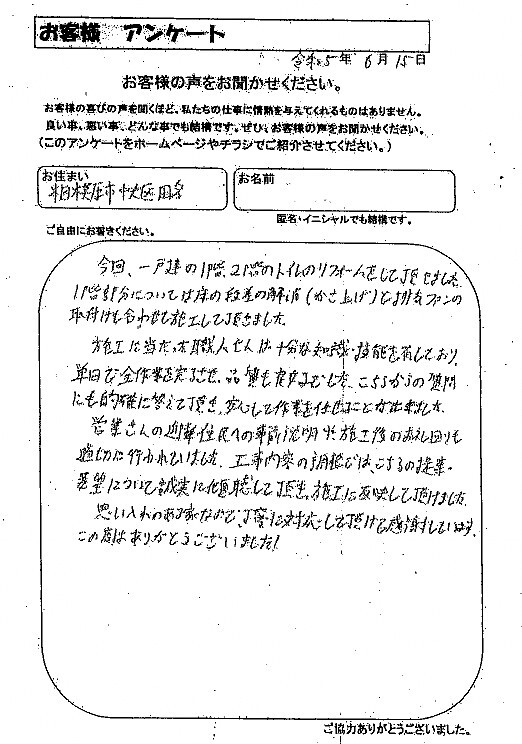 お客様 アンケート
令和5年 6月 15日
お客様の声をお聞かせください。
お客様の喜びの声を聞くほど、私たちの仕事に情熱を与えてくれるものはありません。
良い事、悪い事、どんな事でも結構です。ぜひ、お客様の声をお聞かせください。
(このアンケートをホームページやチラシでご紹介させてください。)
お住まい
相模原市中央区田名
お名前
匿名・イニシャルでも結構です。
ご自由にお書きください。
今回、一戸建の1階、2階のトイレのリフォームをして頂きました。
1階部分については床の段差の解消(かさ上げ)と排気ファンの
取付けも合わせて施工して頂きました。
施工に当たった職人さんは十分な知識・技能を有しており、
単日で全作業を完了させ、品質も良好でした。こちらからの質問
にも的確に答えて頂き、安心して作業を任せることが出来ました。
営業さんの近隣住民への事前説明や施工後のお礼回りも
適切に行われていました。工事内容の調整では、こちらの提案・
要望について誠実に傾聴して頂き、施工に反映して頂けました。
思い入れのある家なので、丁寧に対応して頂けて感謝しています。
この度はありがとうございました!
ご協力ありがとうございました。